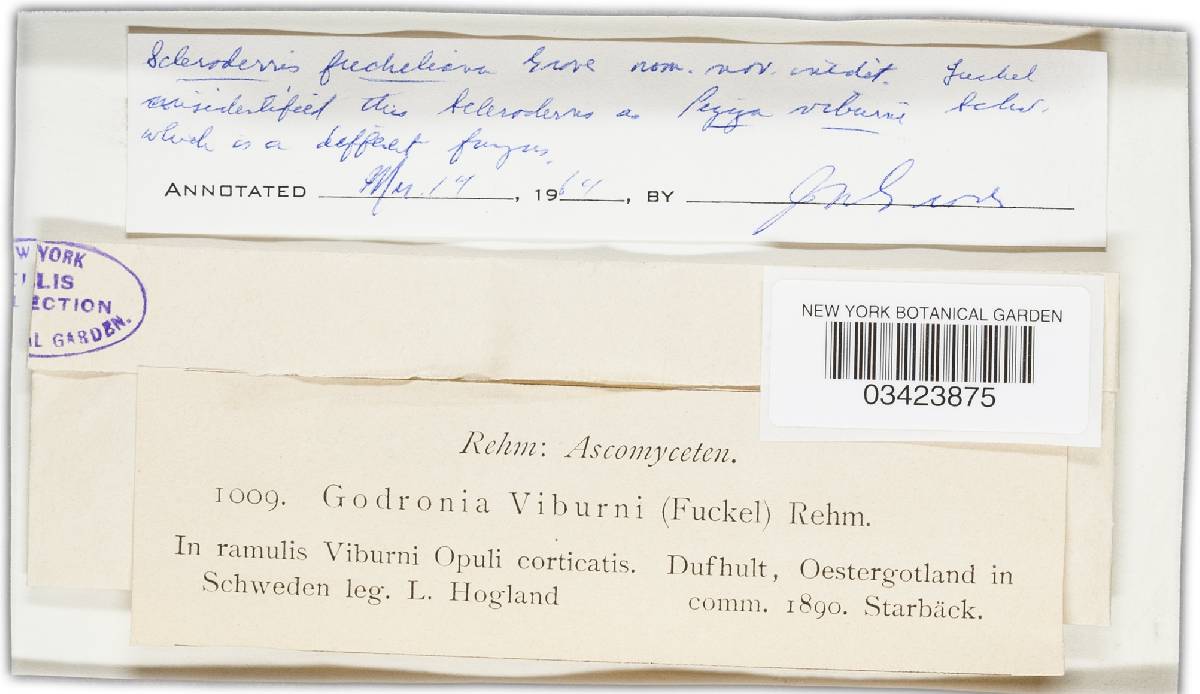 Scleroderris fuckeliana Grove nom. nov. inedit. Fuckel
misidentified this Scleroderris as Peziza viburni Schw.
which is a different fungus.
ANNOTATED Mar. 14, 1964, BY J W Groves
W YORK
LLIS
LECTION
AL GARDEN.
NEW YORK BOTANICAL GARDEN
03423875
Rehm: Ascomyceten.
1009. Godronia Viburni (Fuckel) Rehm.
In ramulis Viburni Opuli corticatis. Dufhult, Oestergotland in
Schweden leg. L. Hogland comm. 1890. Starbäck.